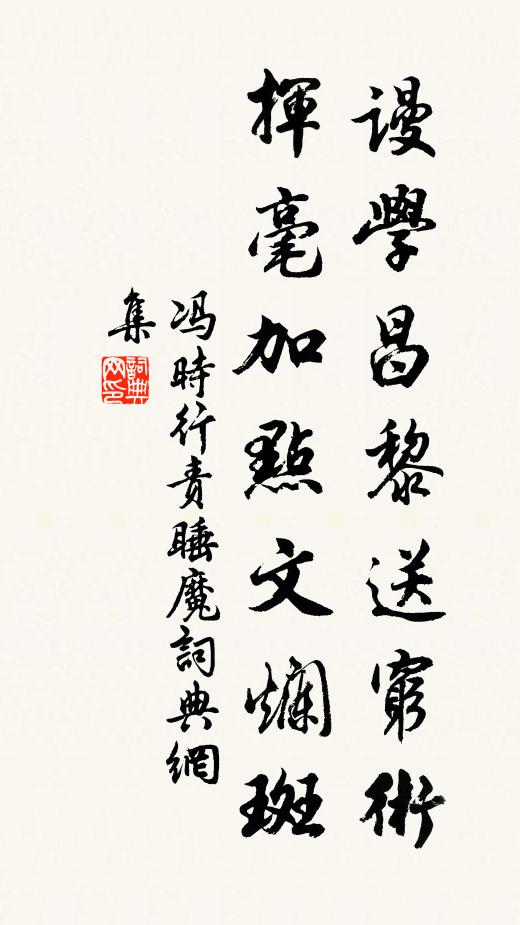 謾學昌黎送窮術
揮毫加點文爛斑
冯時行責睡魔詞典網
集
詞典網印